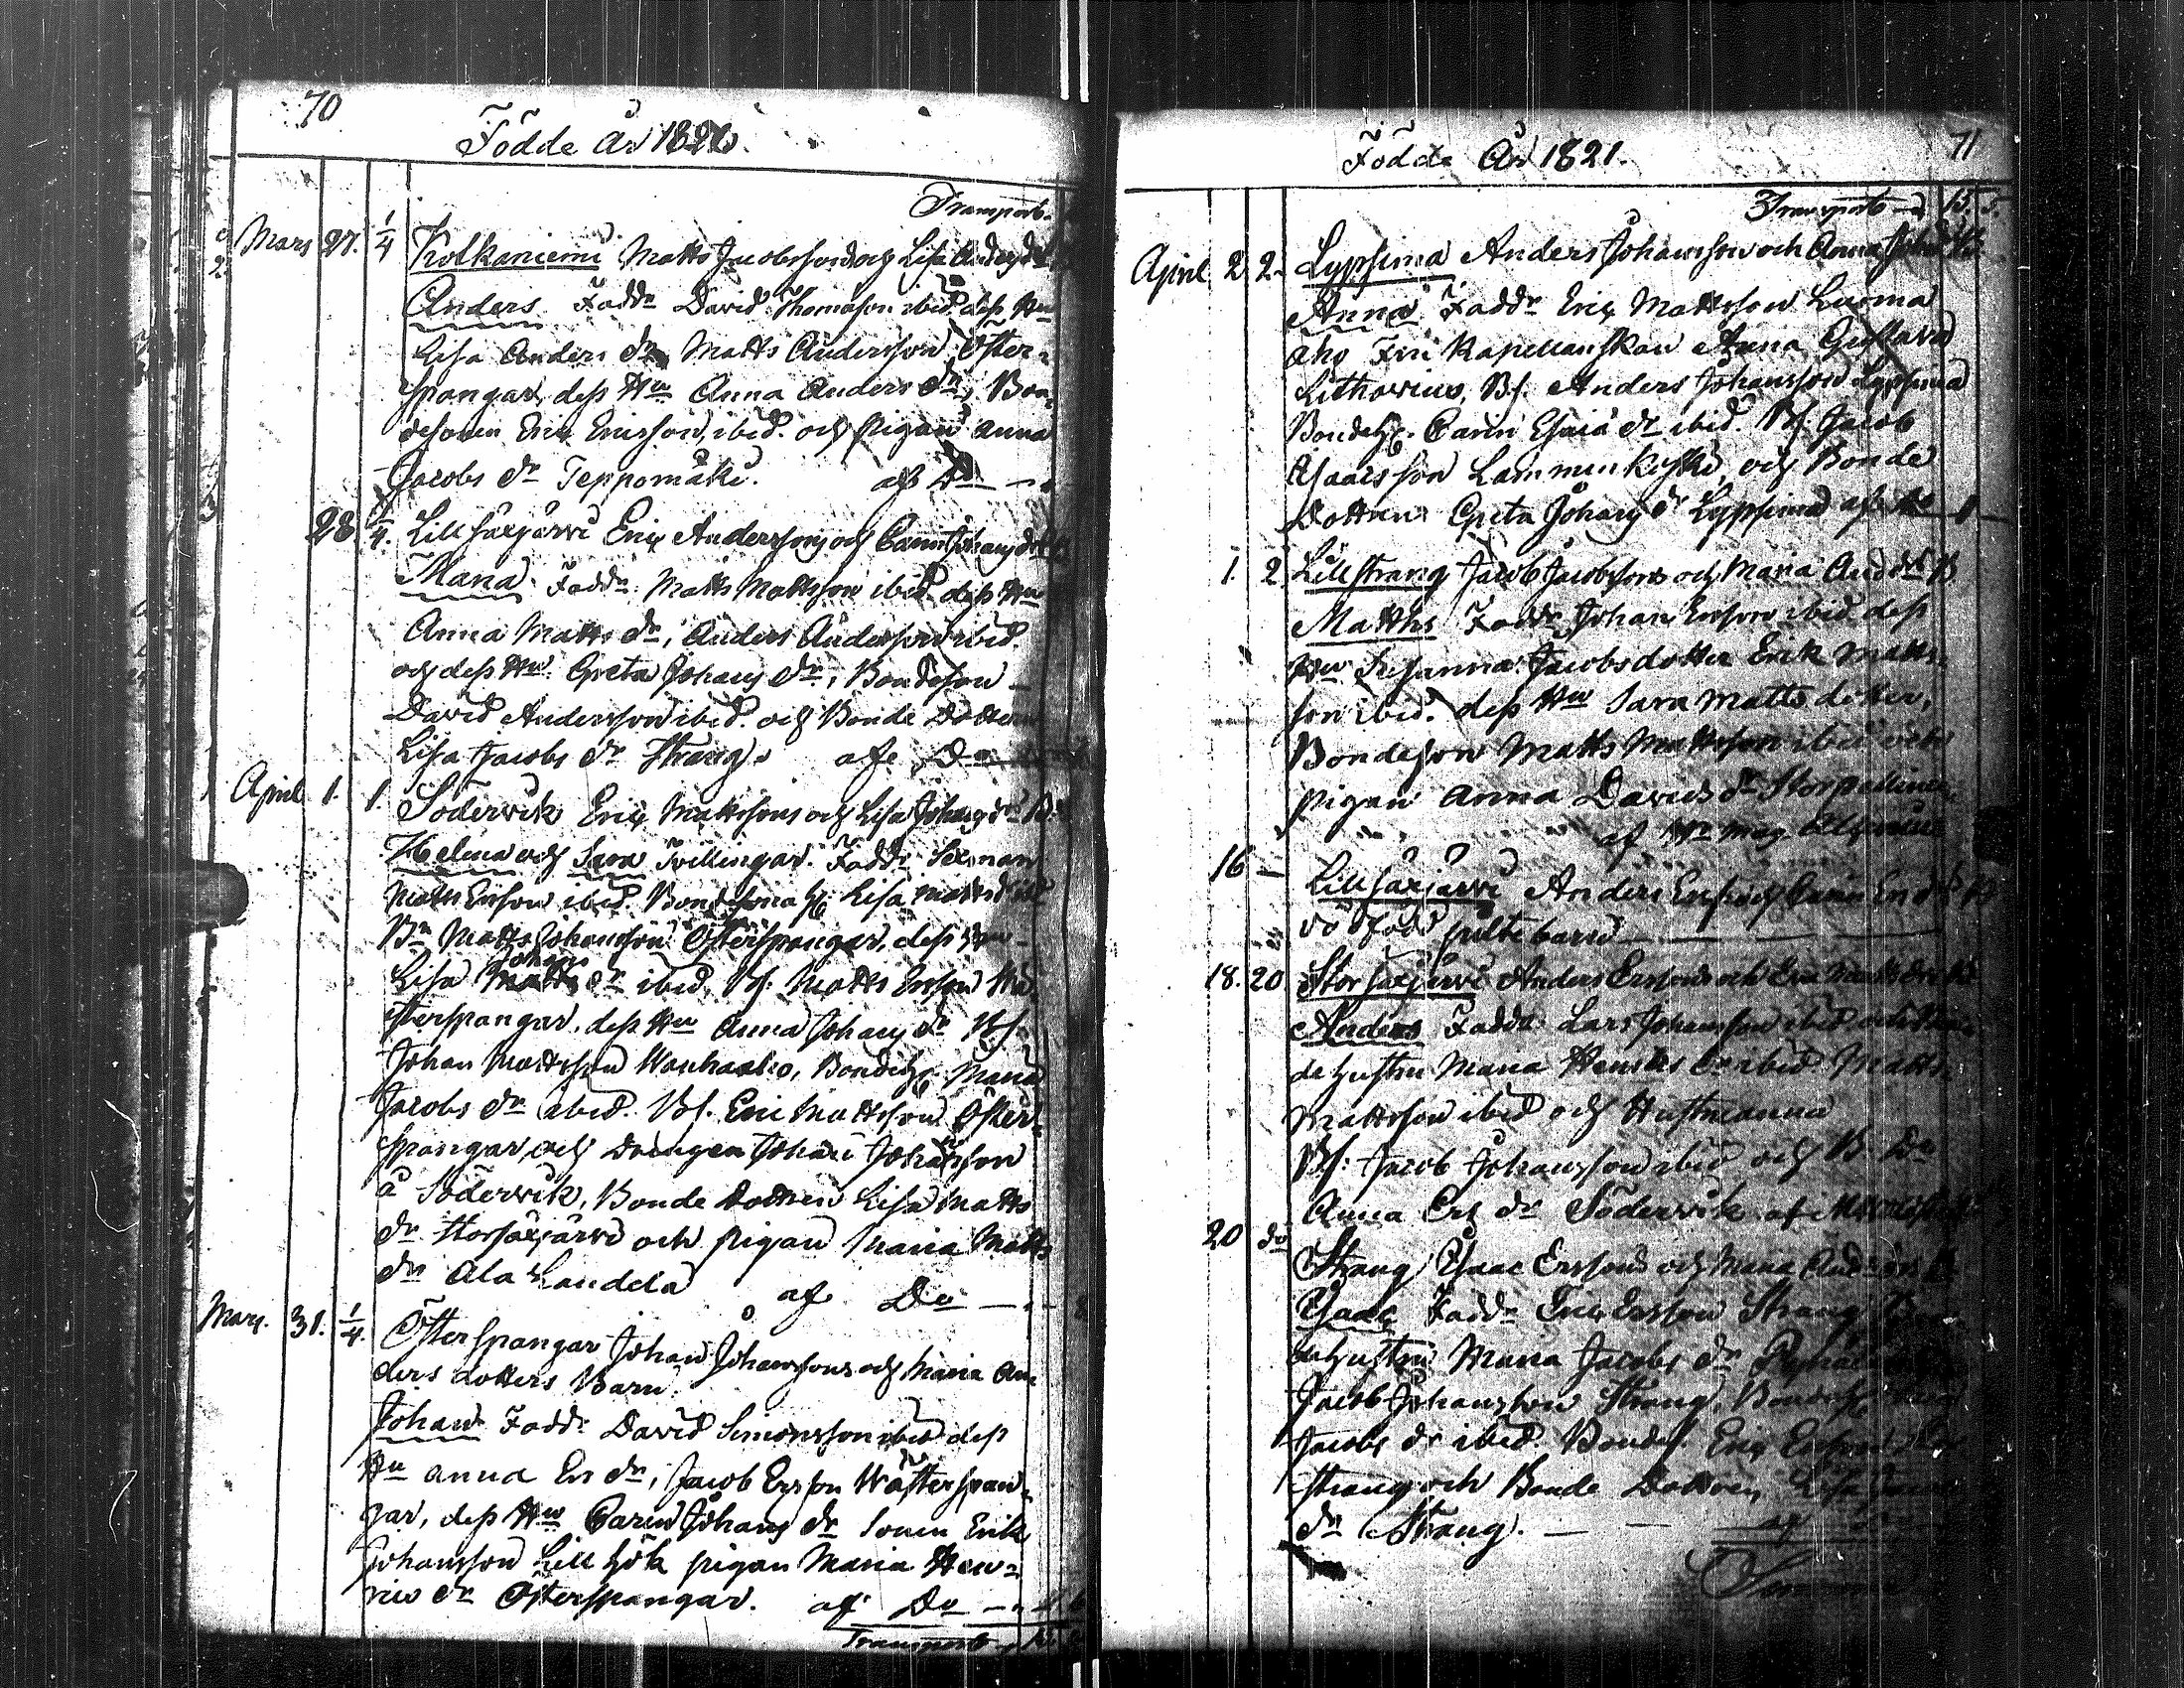 70
Födde År 1821.
Transport.
Mars 27. 1/4 Kolkaniemi Matts Jacobssons och Lisa Anders dr
Anders. Faddr David Thomasson ibid. dess Hu
Lisa Anders dr Matts Andersson Öster-
spangar, dess Hu Anna Anders dr, Bon-
desonen Eric Ericsson, ibid. och pigan Anna
Jacobs dr Teppomäki. af Do
28. 1/4. Lillsaxjärvi Eric Anderssons och Carin Johans dr
Maria. Faddr Matts Mattsson ibid. dess Hu
Anna Matts dr, Anders Andersson ibid.
och dess Hu Greta Johans dr, Bondeson
David Andersson ibid. och Bonde Dottern
Lisa Jacobs dr Strang. af Do
April 1. 1 Södervik Eric Mattssons och Lisa Johans dr B.
Helena och Sara Tvillingar. Faddr Sexman
Matts Ersson ibid. Lisa Matts
Bn Matts Johansson Österspangar, dess Hu
Lisa Johans dr ibid. Bs. Matts Ersson
sterspangar, dess Hu Anna Johans dr Bs.
Johan Mattsson Wanhaaho, Bondeh. Maria
Jacobs dr ibid. Bs. Eric Mattsson Öster-
spangar, och drängen Johan Johansson
å Södervik, Bonde dottren Lisa Matts
dr Storsaxjärvi och pigan Maria Matts
dr Ala Landela af Do
Mars. 31. 1/4. Österspangar Johan Johanssons och Maria An
ders dotters Barn
Johan Faddr David Simonsson ibid dess
Hu Anna Ers dr, Jacob Ersson Wästerspan-
gar, dess Hu Carin Johans dr Sonen Erik
Johansson Lill hök pigan Maria Hen-
rics dr Österspangar. af Do
Transport
71
Födde År 1821.
Transport 15. 5.
April 2. 2. Lypsinä Anders Johansson och Anna
Anna Faddr Eric Mattsson Luoma
aho Fru Kapellanskan Anna Gustava
Lithovius, Bs. Anders Johansson Lypsinä
Bondeh. Carin Esaiæ dr ibid. Bs. Jacob
Isaacsson Lamminkoski, och Bonde
Dottren Greta Johans dr Lypsinä af Do
1. 2 Lillstrang Jacob Jacobssons och Maria And dr B
Matths Faddr Johan Ersson ibid. dess
Hu Susanna Jacobsdotter Erik Matts-
son ibid. dess Hu Sara Matts dotter,
Bondeson Matts Mattsson ibid och
pigan Anna Davids dr
af Hr Mag.
16 Lillsaxjärvi Anders Ers och Carin
dödfödd piltebarn
18. 20 Storsaxjärvi Anders Erssons och Eva Matts dr
Anders Faddr Lars Johansson ibid
de hustru Maria Henriks dr ibid Matts
Mattsson ibid och Hust Anna
Bs. Jacob Johansson ibid och B. Dr
Anna Ers dr Södervik af
20 do Strang Isaac Erssons och Maria Anders
Isaac Faddr Eric Ersson Strang
dehustru Maria Jacobs dr
Jacob Johansson Strang,
Jacobs dr ibid. Bondes. Eric Ersson
strang och Bonde Dottren Lisa
dr Strang. af
Summa